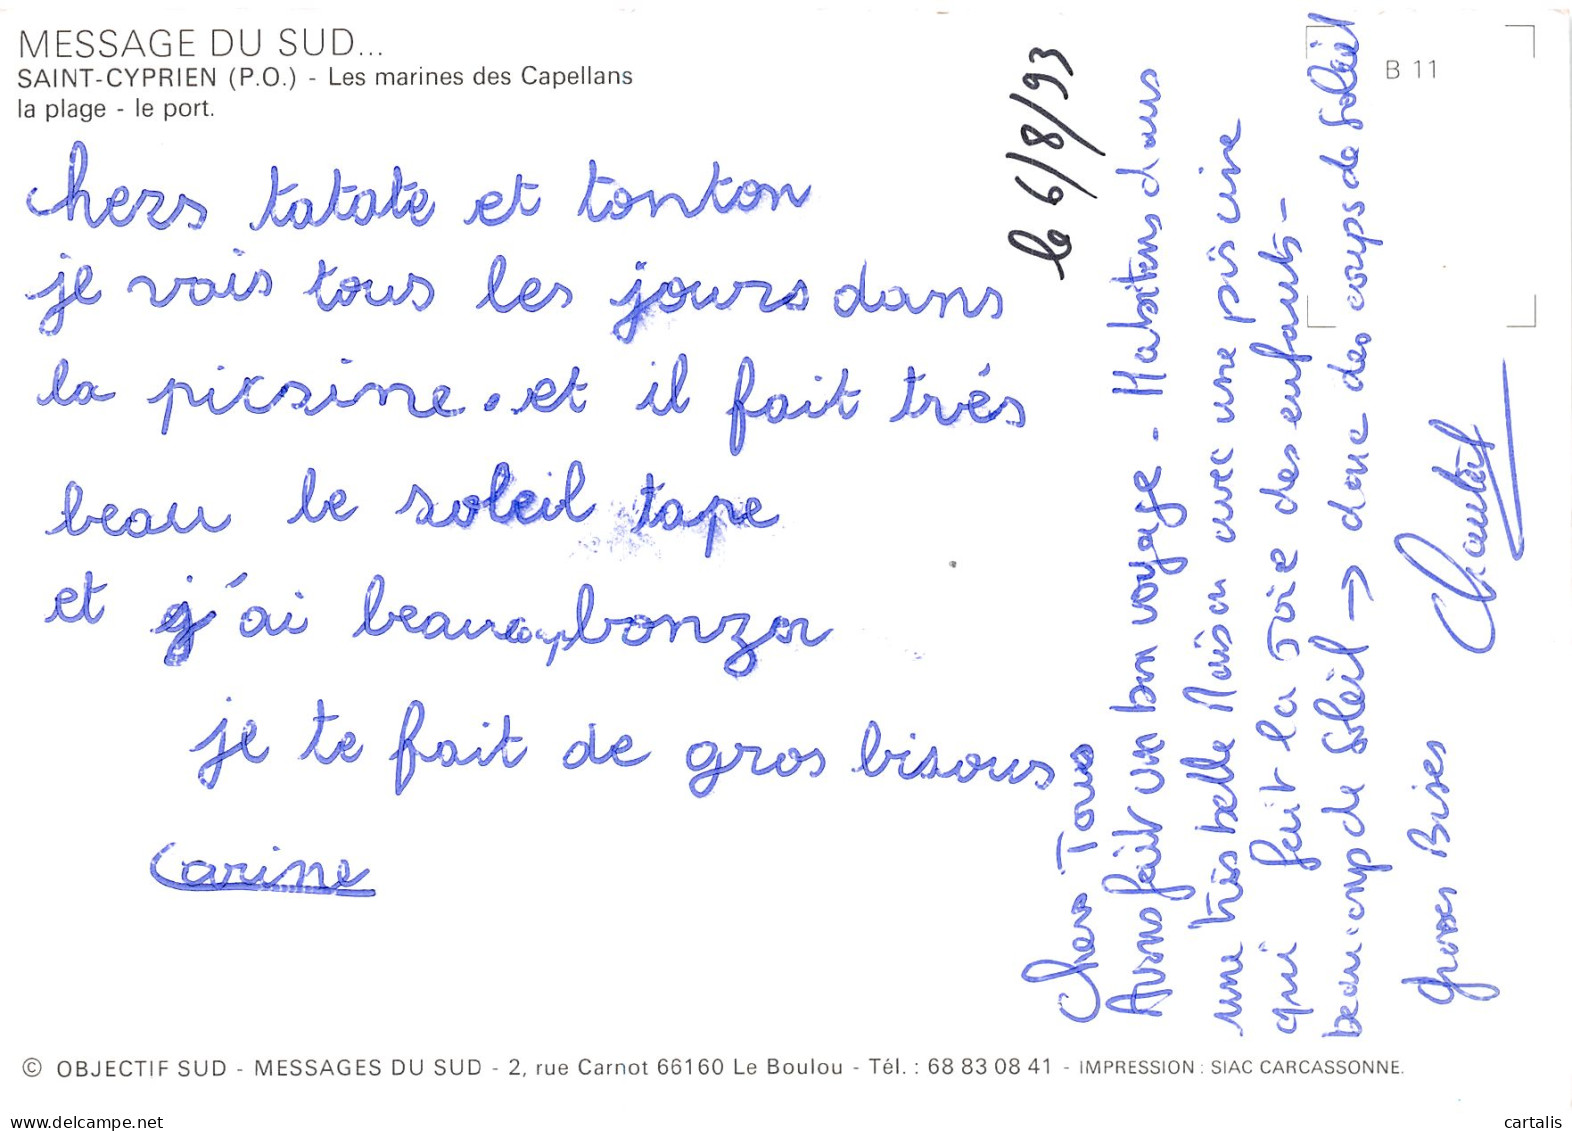 MESSAGE DU SUD...
SAINT-CYPRIEN (P.O.) - Les marines des Capellans
la plage - le port.
B 11
chers tatate et tonton
je vais tous les jours dans
la picsine. et il fait trés
beau le soleil tape
et j'ai beaucoup bonzer
je te fait de gros bisous
Carine
le 6/8/93
Chers Tous
Avons fait un bon voyage - Habitons dans
une très belle Maison avec une piscine
qui fait la Joie des enfants -
beaucoup de Soleil → donc des coups de Soleil
Grosses Bises
Chantal
© OBJECTIF SUD - MESSAGES DU SUD - 2, rue Carnot 66160 Le Boulou - Tél. : 68 83 08 41 - IMPRESSION : SIAC CARCASSONNE.
www.delcampe.net
cartalis